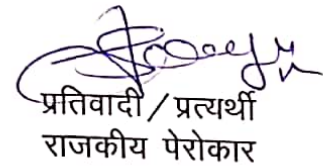 प्रतिवादी / प्रत्यर्थी
राजकीय पेरोकार